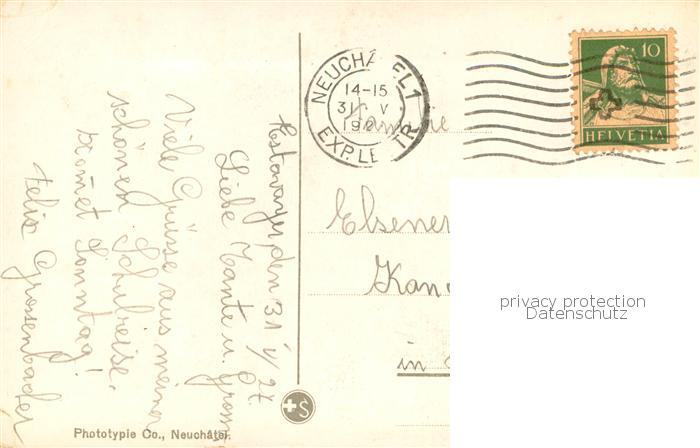 Estavayer, den 31 V 27.
Liebe Tante u. Gross
Viele Grüsse aus meiner
schönen Schulreise.
komet Sonntag!
Felix Grossenbacher
Phototypie Co., Neuchâtel.
NEUCHÂTEL 1
14-15
31 V
EXP. LETTR
10
HELVETIA
Familie
Elsener
Kan
in
S
privacy protection
Datenschutz